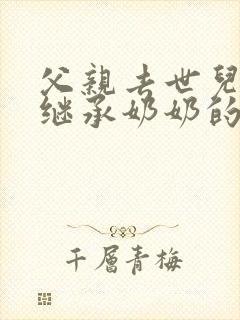 父親去世兒
继承奶奶的
千層青梅